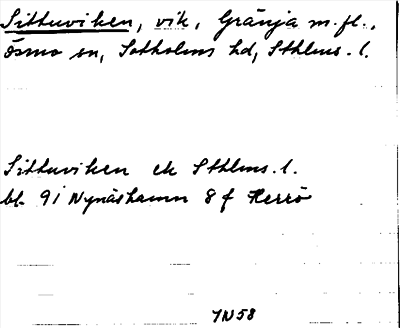 Sittuviken, vik, Gränja m.fl.,
Ösmo sn, Sotholms hd, Sthlms. l.
Sittuviken ek Sthlms. l.
bl. 9i Nynäshamn 8 f Herrö
JN58